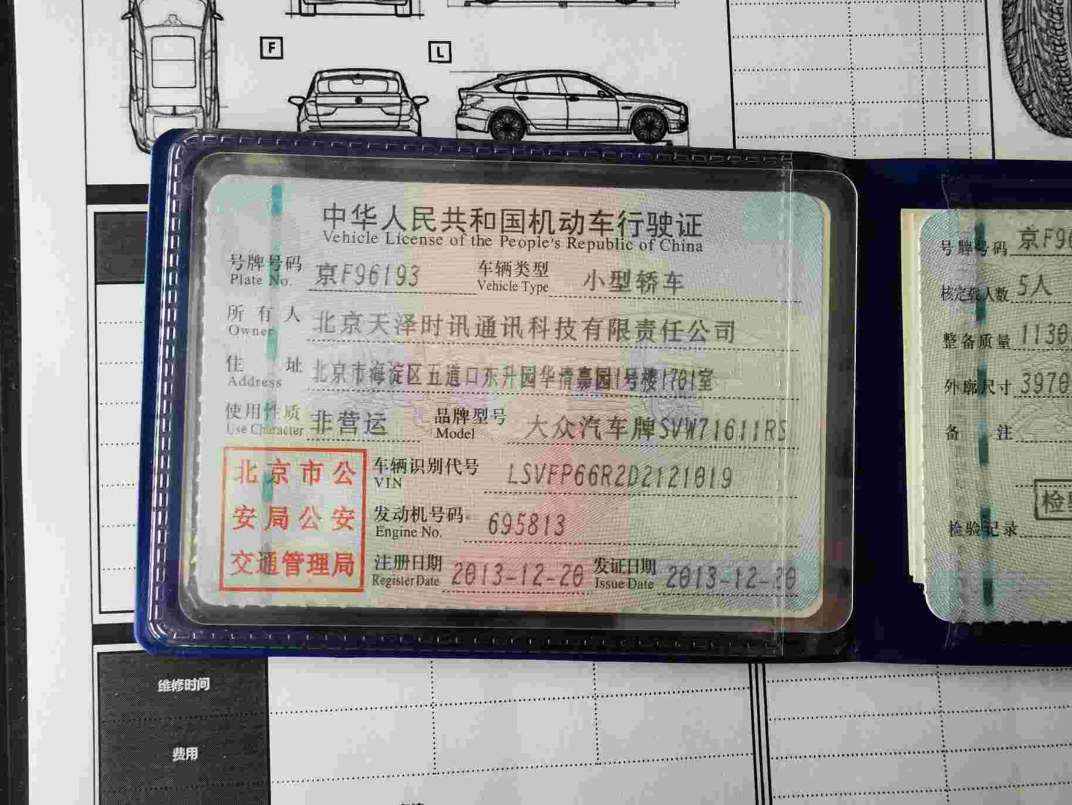 F
L
中华人民共和国机动车行驶证
Vehicle License of the People's Republic of China
号牌号码 京F96193 车辆类型 小型轿车
Plate No. Vehicle Type
所有人 北京天泽时讯通讯科技有限责任公司
Owner
住址 北京市海淀区五道口东升园华清嘉园1号楼1701室
Address
使用性质 非营运 品牌型号 大众汽车牌SVW71611RS
Use Character Model
北京市公
安局公安
交通管理局
车辆识别代号 LSVFP66R2D2121019
VIN
发动机号码 695813
Engine No.
注册日期 2013-12-20 发证日期 2013-12-20
Register Date Issue Date
号牌号码 京F96
核定载人数 5人
整备质量 1130
外廓尺寸 3970
备注
检验记录
维修时间
费用